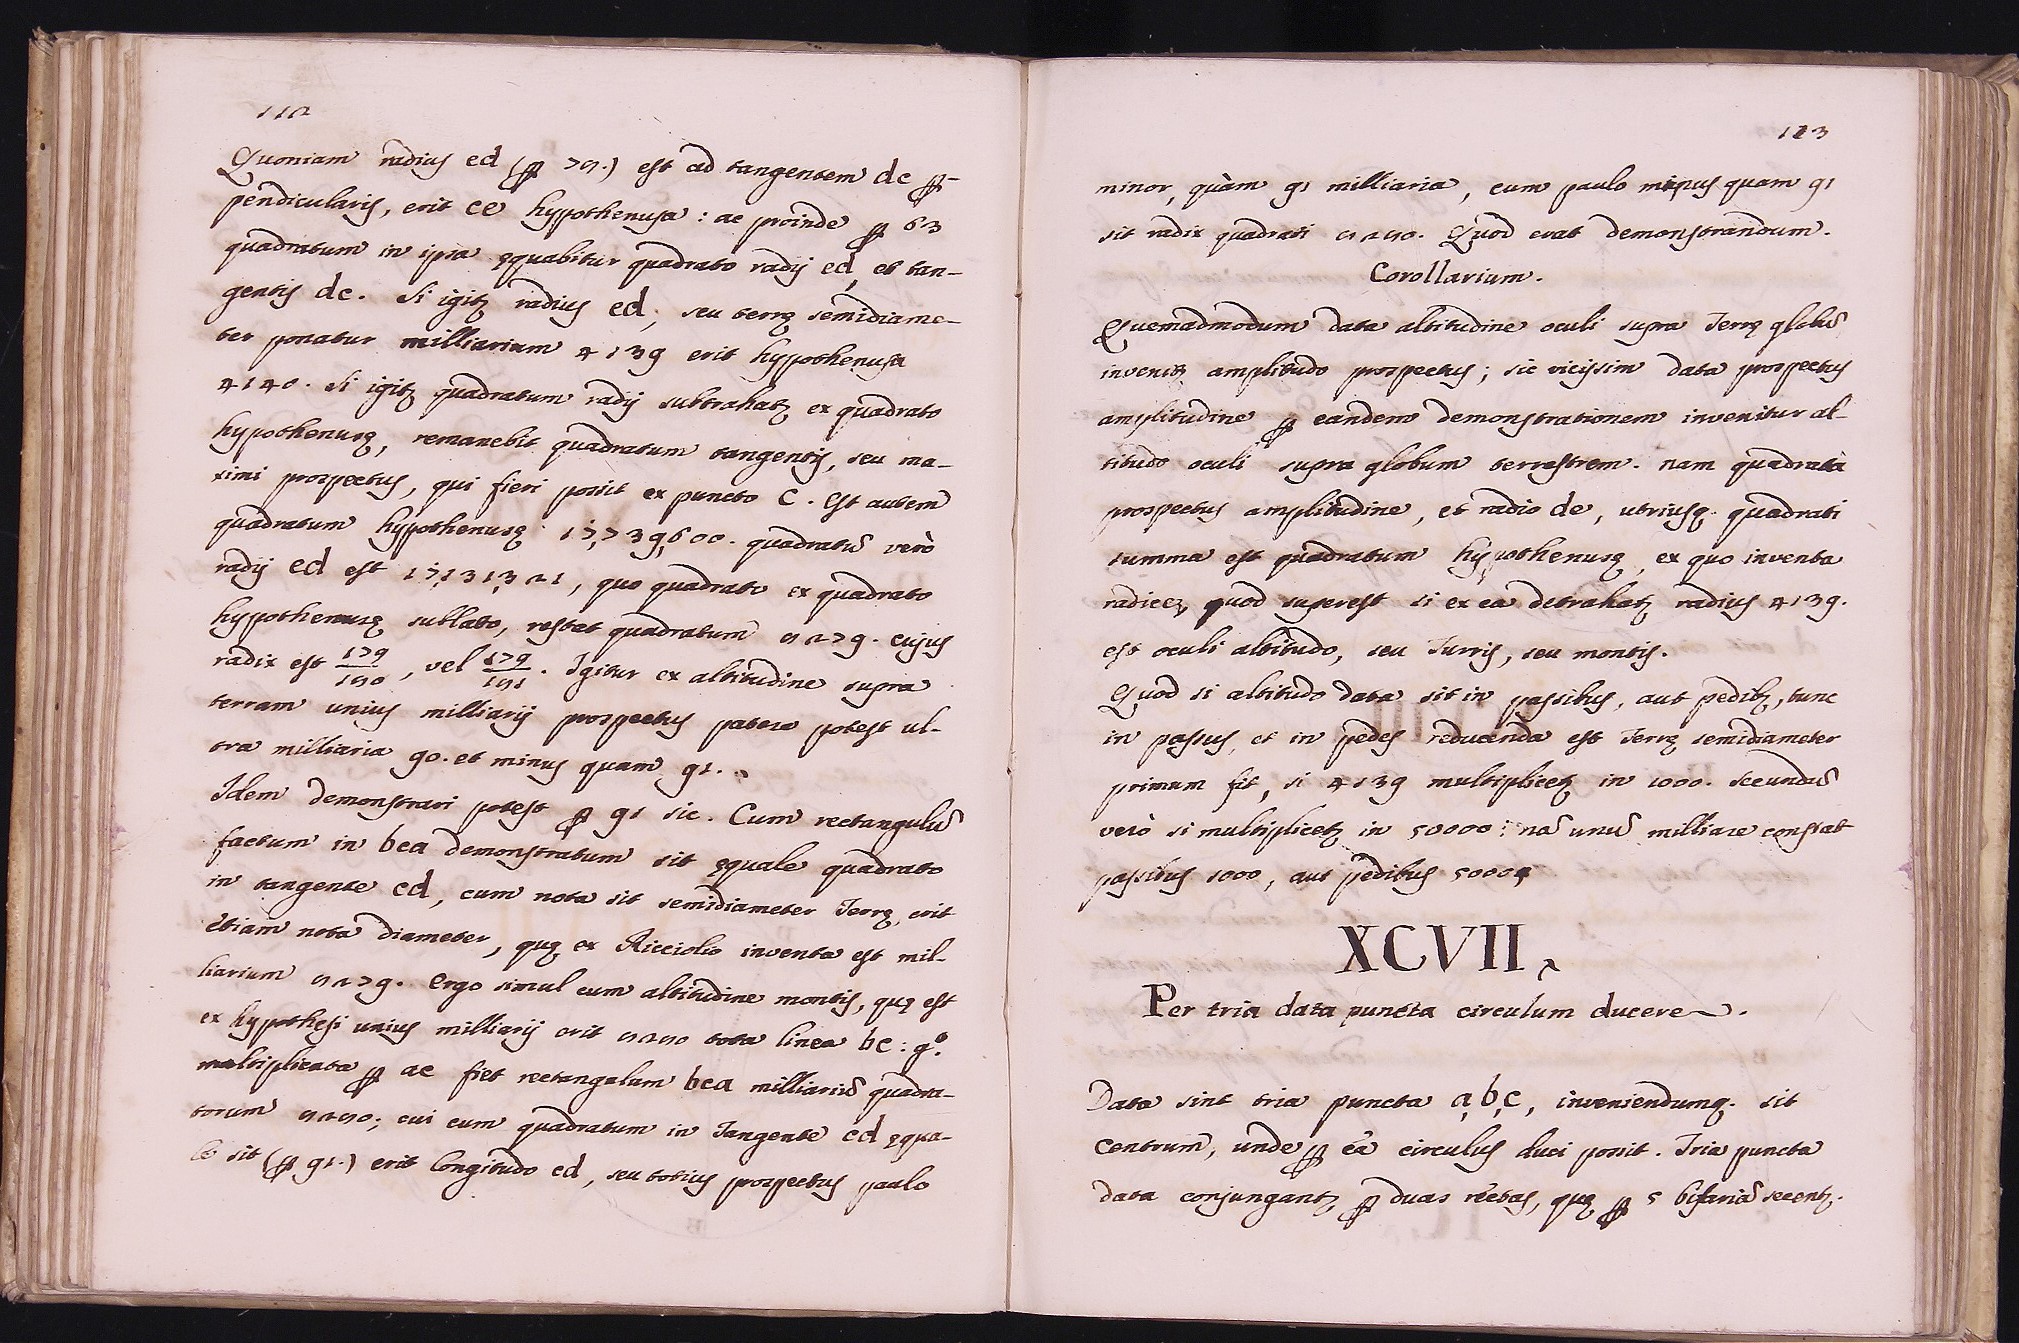 112
Quoniam radius ed (ꝑ 78.) est ad tangentem dc ꝑ-
pendicularis, erit ce hypothenusa : ac proinde ꝑ 63
quadratum in ipsa ęquabitur quadrato radij ed, et tan-
gentis dc. Si igitꝫ radius ed, seu terrę semidiame-
ter ponatur milliarium 4139 erit hypothenusa
4140. Si igitꝫ quadratum radij subtrahatꝫ ex quadrato
hypothenusę, remanebit quadratum tangentis, seu ma-
ximi prospectus, qui fieri possit ex puncto C. Est autem
quadratum hypothenusę 17,739,600. quadratū verò
radij ed est 17,131,321, quo quadrato ex quadrato
hypothenusę sublato, restat quadratum 8279. cujus
radix est 179/180, vel 179/181. Igitur ex altitudine supra
terram unius milliarij prospectus patere potest ul-
tra milliaria 90. et minus quam 91.
Idem demonstrari potest ꝑ 91 sic. Cum rectangulū
factum in bca demonstratum sit ęquale quadrato
in tangente cd, cum nota sit semidiameter Terrę, erit
etiam nota diameter, quę ex Ricciolio inventa est mil-
liarium 8279. ergo simul cum altitudine montis, quę est
ex hypothesi unius milliarij erit 8280 tota linea bc : g°.
multiplicata ꝑ ac fiet rectangulum bca milliariū quadra-
torum 8280; cui cum quadratum in Tangente cd ęqua-
le sit (ꝑ 91.) erit longitudo cd, seu totius prospectus paulo
113
minor, quàm 91 milliaria, cum paulo minus quam 91
sit radix quadrati 8280. Quod erat demonstrandum.
Corollarium.
Quemadmodum data altitudine oculi supra Terrę globū
invenitꝫ amplitudo prospectus; sic vicissim data prospectus
amplitudine ꝑ eandem demonstrationem invenitur al-
titudo oculi supra globum terrestrem. nam quadratà
prospectus amplitudine, et radio de, utriusqꝫ quadrati
summa est quadratum hypothenusę, ex quo inventa
radice, quod superest si ex ea detrahatꝫ radius 4139.
est oculi altitudo, seu Turris, seu montis.
Quod si altitudo data sit in passibus, aut pedibꝫ, tunc
in passus, et in pedes reducenda est Terrę semidiameter
primum fit, si 4139 multiplicetꝫ in 1000. secundū
verò si multiplicetꝫ in 50000 : nā unū milliare constat
passibus 1000, aut pedibus 5000
XCVII.
Per tria data puncta circulum ducere.
Data sint tria puncta a,b,c, inveniendumqꝫ sit
centrum, unde ꝑ ea circulus duci possit. Tria puncta
data conjungantꝫ ꝑ duas rectas, quę ꝑ 5 bifariā secentꝫ.